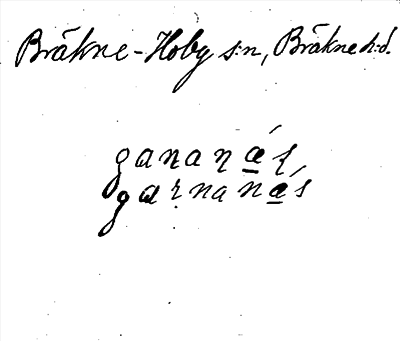 Bräkne-Hoby s:n, Bräkne h:d.
gaṇaṇa̱ǽʂ
garnanǽs